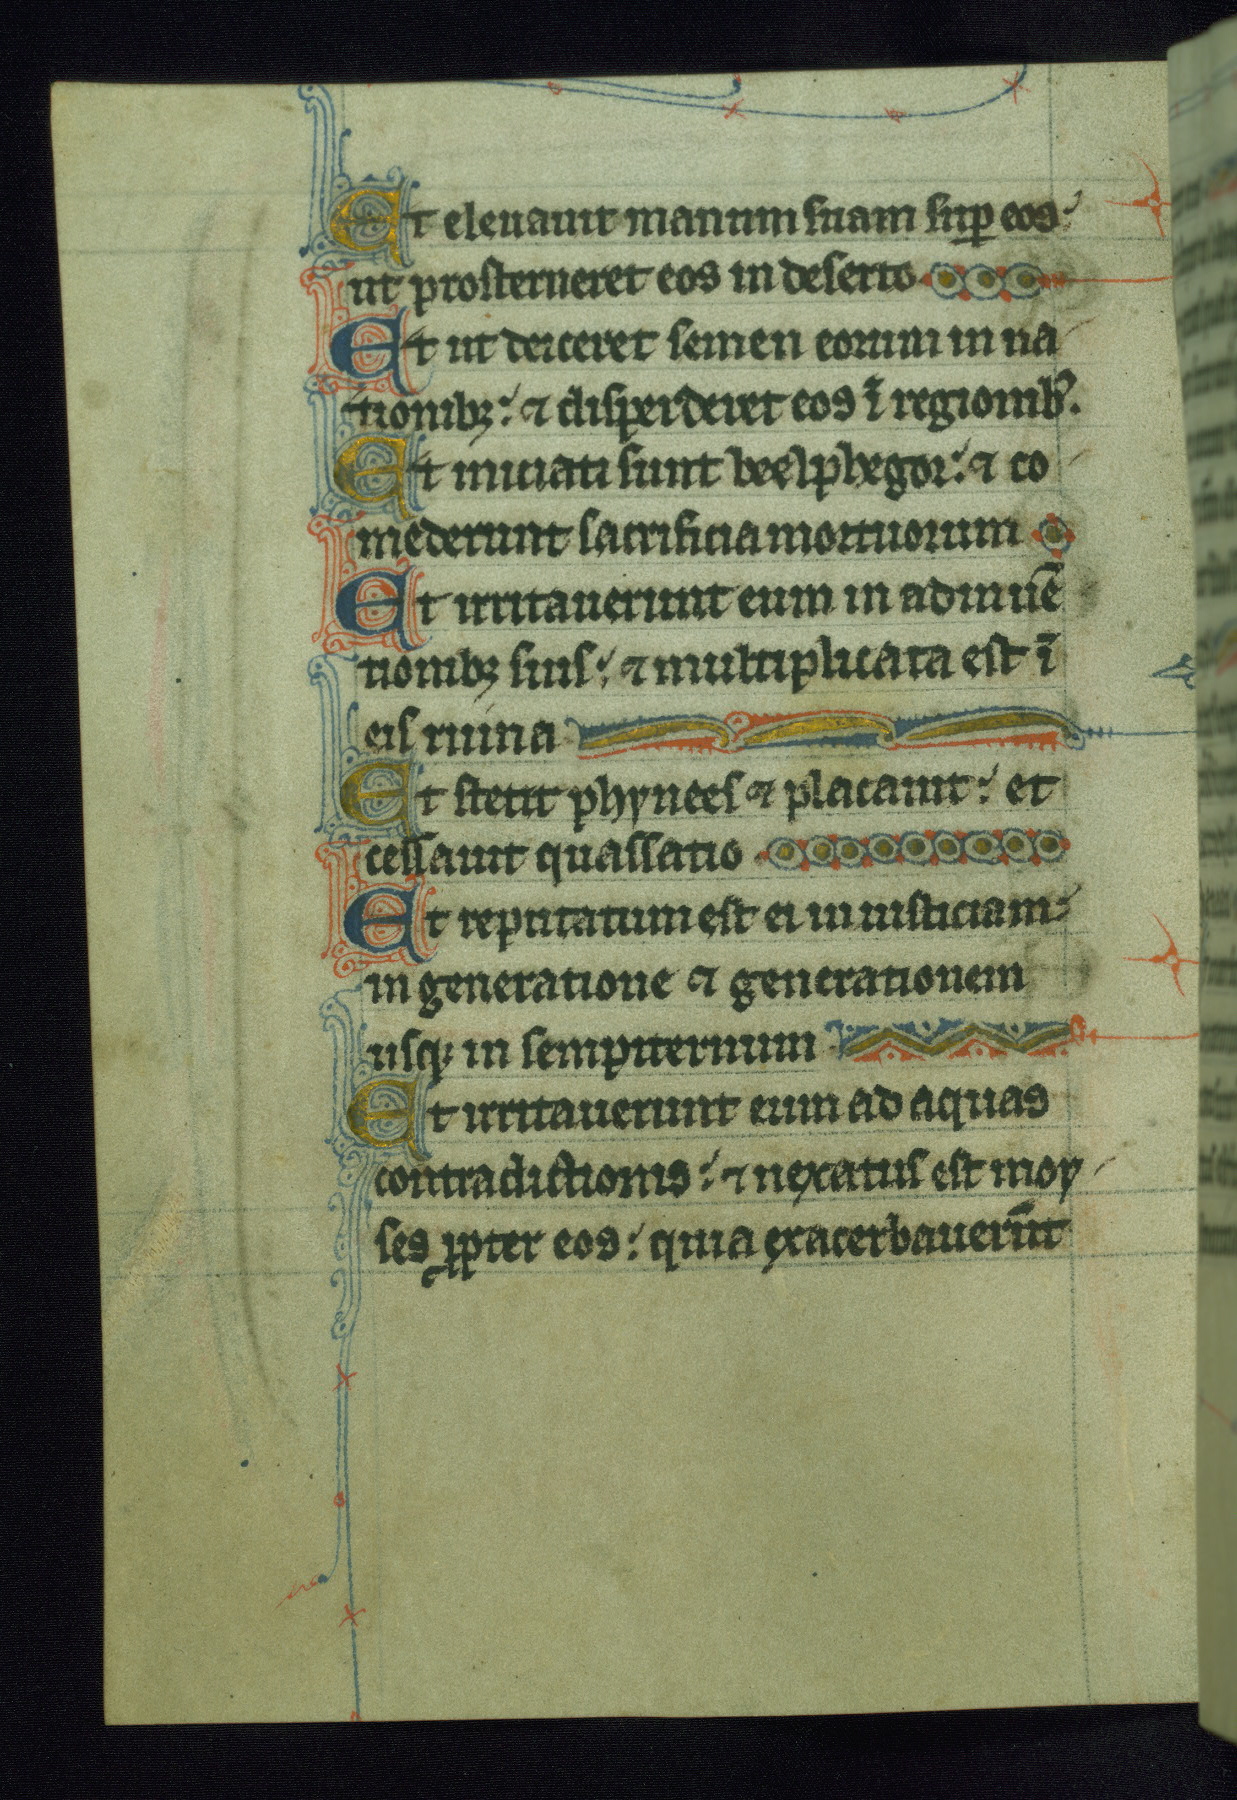 Et eleuauit manum suam sup eos:
ut prosterneret eos in deserto
Et ut deiceret semen eorum in na
tionibꝫ: ⁊ disperderet eos ī regionibꝰ.
Et iniciati sunt beelphegor: ⁊ co
mederunt sacrificia mortuorum
Et irritauerunt eum in adinuē
tionibꝫ suis: ⁊ multiplicata est ī
eis ruina
Et stetit phynees ⁊ placauit: et
cessauit quassatio
Et reputatum est ei in iusticiam:
in generatione ⁊ generationem
usqꝫ in sempiternum
Et irritauerunt eum ad aquas
contradictionis: ⁊ uexatus est moy
ses ꝓpter eos: quia exacerbauerūt